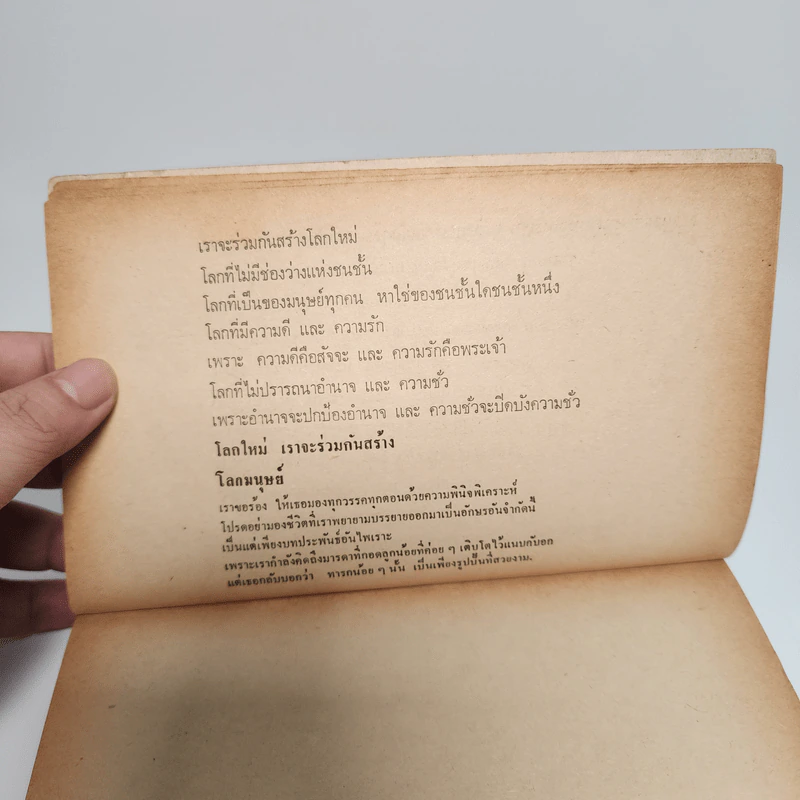 เราจะร่วมกันสร้างโลกใหม่
โลกที่ไม่มีช่องว่างแห่งชนชั้น
โลกที่เป็นของมนุษย์ทุกคน หาใช่ของชนชั้นใดชนชั้นหนึ่ง
โลกที่มีความดี และ ความรัก
เพราะ ความดีคือสัจจะ และ ความรักคือพระเจ้า
โลกที่ไม่ปรารถนาอำนาจ และ ความชั่ว
เพราะอำนาจจะปกป้องอำนาจ และ ความชั่วจะปิดบังความชั่ว
โลกใหม่ เราจะร่วมกันสร้าง
โลกมนุษย์
เราขอร้อง ให้เธอมองทุกวรรคทุกตอนด้วยความพินิจพิเคราะห์
โปรดอย่ามองชีวิตที่เราพยายามบรรยายออกมาเป็นอักษรอันจำกัดนี้
เป็นแต่เพียงบทประพันธ์อันไพเราะ
เพราะเรากำลังคิดถึงมารดาที่กอดลูกน้อยที่ค่อย ๆ เติบโตไว้แนบกับอก
แต่เธอกลับบอกว่า ทารกน้อย ๆ นั้น เป็นเพียงรูปปั้นที่สวยงาม.